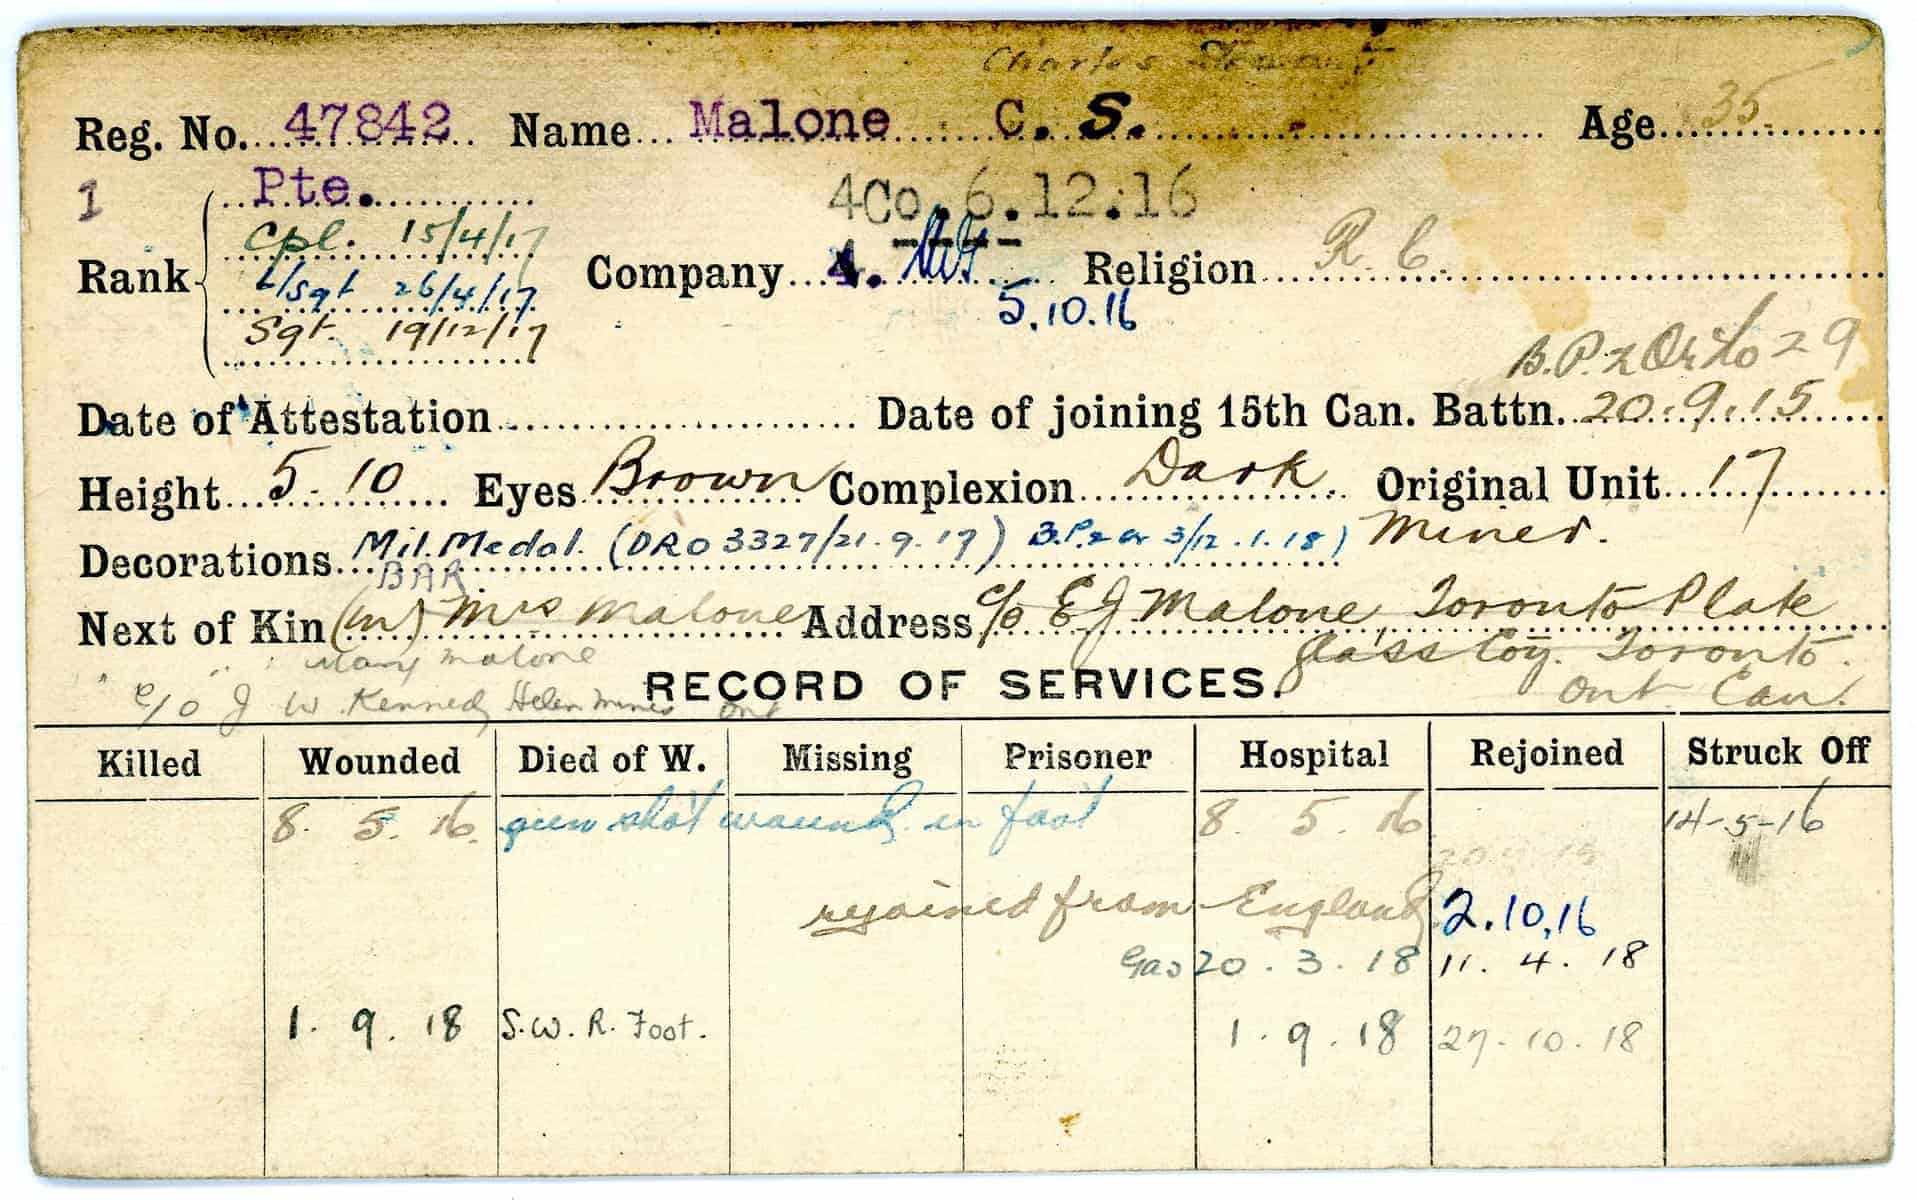 Charles Stewart
Reg. No. 47842 Name Malone C. S. Age 35
1 Pte. 4Co. 6.12.16
Cpl. 15/4/17
Rank L/Sgt 26/4/17 Company 4. Religion R. C.
5.10.16
Sgt. 19/12/17
B.P. 2 Or 29
Date of Attestation Date of joining 15th Can. Battn. 20.9.15
Height 5-10 Eyes Brown Complexion Dark Original Unit 17
Decorations Mil. Medal. (DRO 3327/21.9.17) B.P.2 or 3/12.1.18) Miner.
BAR
Next of Kin (m) Mrs Malone Address c/o E J Malone, Toronto Plate
Glass Coy. Toronto.
" " Mary Malone
Ont Can.
c/o J W Kennedy Helen Mines Ont
RECORD OF SERVICES.
Killed Wounded Died of W. Missing Prisoner Hospital Rejoined Struck Off
8. 5. 16 gun shot wound in foot 8. 5. 16 14-5-16
rejoined from England 2.10.16
Gas 20. 3. 18 11. 4. 18
1. 9. 18 S.W. R. Foot. 1. 9. 18 27. 10. 18